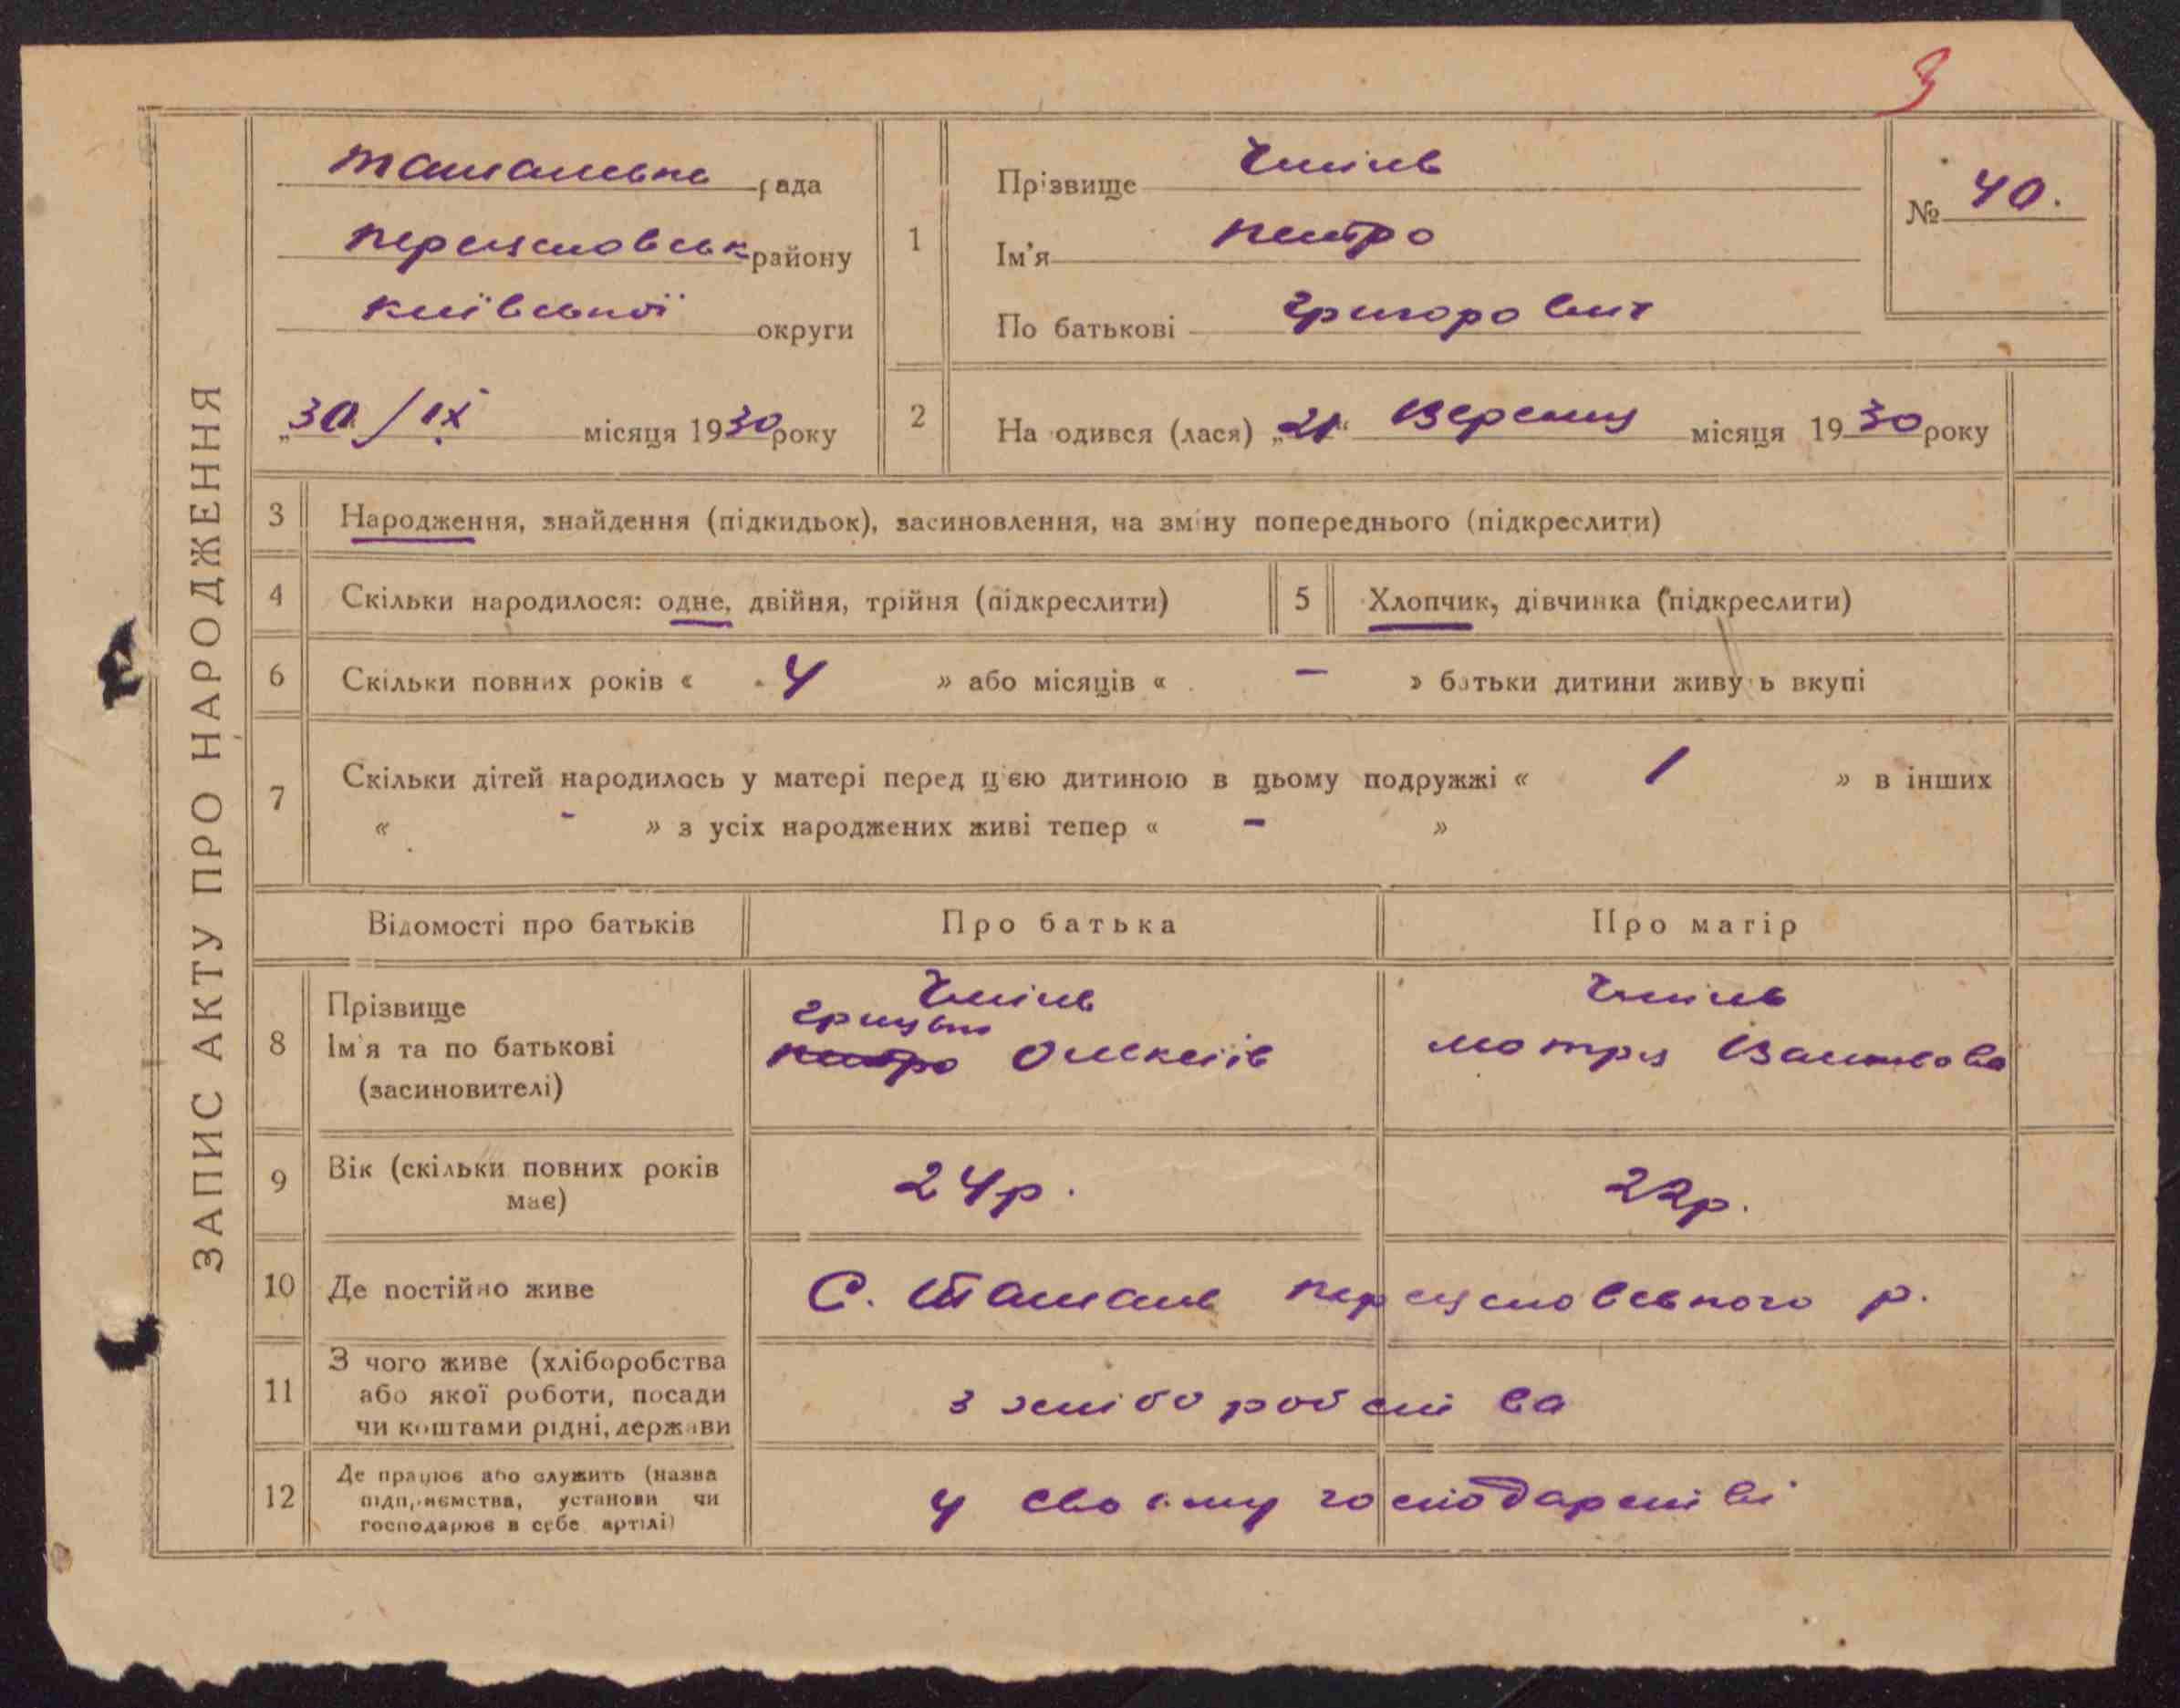 3
ЗАПИС АКТУ ПРО НАРОДЖЕННЯ
Ташанська рада
Переяславськ району
Київської округи
„30/IX місяця 1930 року
1
Прізвище Чміль
Ім'я Петро
По батькові Григорович
№ 40.
2 На одився (лася) „21“ Вересня місяця 1930 року
3 Народження, знайдення (підкидьок), засиновлення, на зміну попереднього (підкреслити)
4 Скільки народилося: одне, двійня, трійня (підкреслити) 5 Хлопчик, дівчинка (підкреслити)
6 Скільки повних років « 4 » або місяців « – » батьки дитини живу ь вкупі
7 Скільки дітей народилось у матері перед цією дитиною в цьому подружжі « 1 » в інших
« - » з усіх народжених живі тепер « – »
Відомості про батьків Про батька Про матір
8 Прізвище Чміль Чміль
Ім'я та по батькові Грицько Петро Олексіїв Мотря
(засиновителі)
9 Вік (скільки повних років має) 24 р. 22 р.
10 Де постійно живе С. Ташань Переяславського р.
11 З чого живе (хліборобства
або якої роботи, посади
чи коштами рідні, держави
з хліборобства
12 Де працює або служить (назва
підприємства, установи чи
господарює в себе артілі)
у своєму господарстві